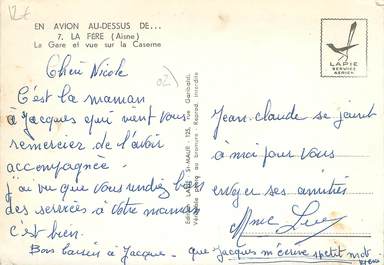 12€
EN AVION AU-DESSUS DE...
7. LA FÈRE (Aisne)
La Gare et vue sur la Caserne
LAPIE
SERVICE
AÉRIEN
(02)
Chère Nicole
C'est la maman
à Jacques qui vient vous
remercier de l'avoir
accompagnée.
j'ai vu que vous rendiez bien
des services à votre maman
c'est bien.
Bons baisers à Jacques - que Jacques m'écrive un petit mot
Jean-Claude se joint
à moi pour vous
envoyer ses amitiés
Mme
Éditions LAPIE St-MAUR - 125, rue Garibaldi.
Véritable photo au bromure - Reprod. interdite